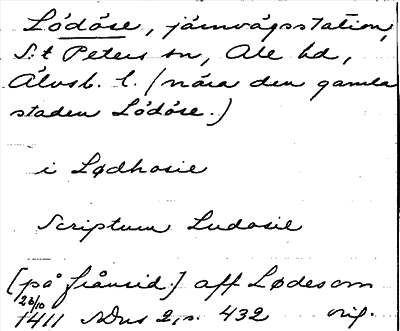 Lödöse, järnvägsstation,
S:t Peters sn, Ale hd,
Älvsb. l. (nära den gamla
staden Lödöse.)
i Lødhosie
Scriptum Ludosie
[på frånsid.] aff Lødesom
23/10
1411 SDns 2, s. 432 orig.